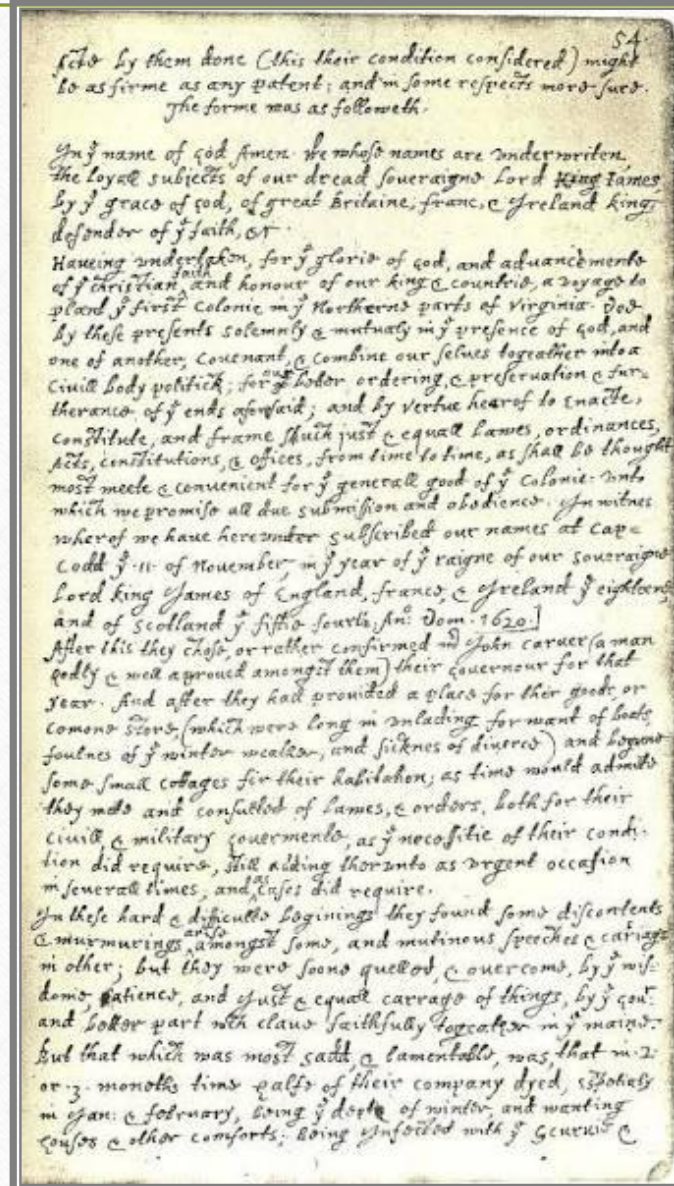 54.
Acts by them done (this their condition considered) might
be as firme as any patent; and in some respects more sure.
The forme was as followeth.
In yͤ name of god Amen. We whose names are underwriten,
the loyall subjects of our dread soveraigne Lord King James,
by yͤ grace of god, of great Britaine, franc, & Ireland king,
defender of yͤ faith, &c
Haveing undertaken, for yͤ glorie of god, and advancemente
of yͤ christian faith and honour of our king & countrie, a voyage to
plant yͤ first Colonie in yͤ Northerne parts of Virginia. Doe
by these presents solemnly & mutualy in yͤ presence of god, and
one of another, Covenant, & combine our selves togeather into a
Civill body politick; for our better ordering, & preservation & fur=
therance of yͤ ends aforesaid; and by vertue hearof to Enacte,
constitute, and frame such just & equall lawes, ordinances,
Acts, constitutions, & offices, from time to time, as shall be thought
most meete & convenient for yͤ generall good of yͤ Colonie: unto
which we promise all due submission and obedience. In witnes
wherof we have hereunder subscribed our names at Cap=
Codd yͤ .11. of November, in yͤ year of yͤ raigne of our soveraigne
Lord king James of England, france, & Ireland yͤ eighteenth
and of Scotland yͤ fiftie fourth. Anͦ: Dom. 1620.]
After this they chose, or rather confirmed mͬ John Carver (a man
godly & well aproved amongst them) their governour for that
year. And after they had provided a place for their goods, or
comone store, (which were long in unlading for want of boats,
foulnes of yͤ winter weather, and sicknes of diverce) and begune
some small cottages for their habitation; as time would admitte
they mete and consulted of lawes, & orders, both for their
civill, & military govermente, as yͤ necessitie of their condi=
tion did require, still adding therunto as urgent occasion
in severall times, and as cases did require.
In these hard & difficulte beginings they found some discontents
& murmurings arise amongst some, and mutinous speeches & cariags
in other; but they were soone quelled, & overcome, by yͤ wis=
dome, patience, and just & equall carrage of things, by yͤ Govͬ
and better part wͨͪ clave faithfully togeather in yͤ maine.
But that which was most sadd, & lamentable, was, that in .2.
or .3. moneths time halfe of their company dyed, espetialy
in Jan: & february, being yͤ depth of winter, and wanting
houses & other comforts; being Infected with yͤ Scurvie &